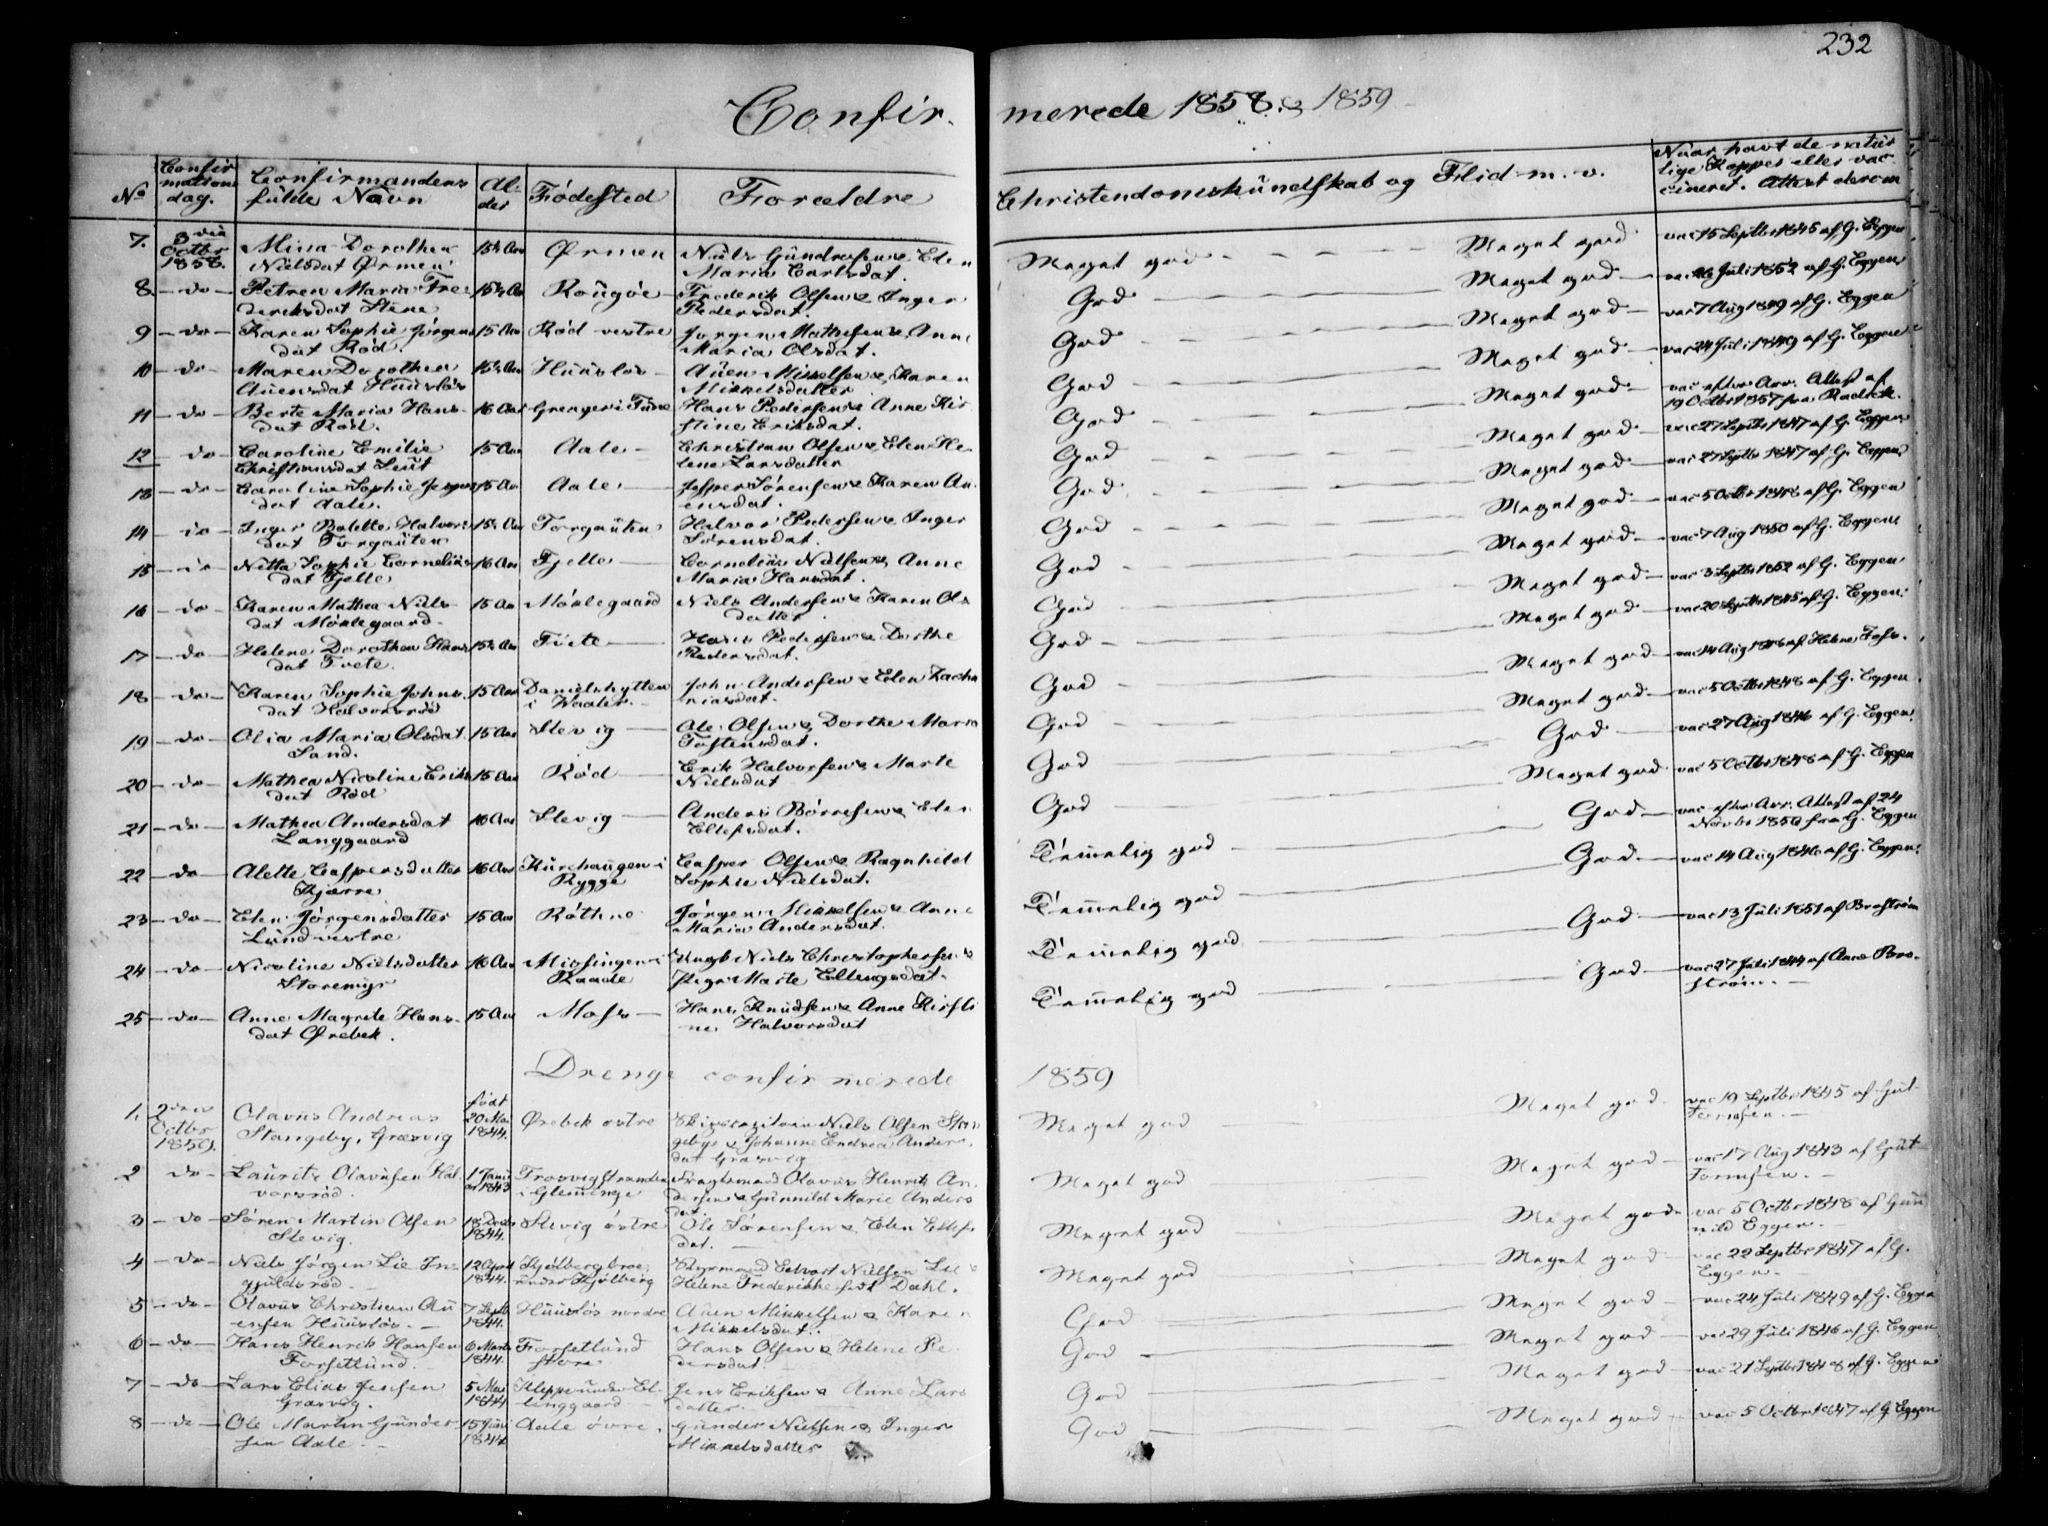 232
Confirmerede 1858 & 1859
No
Confirmations dag.
Confirmandens fulde Navn
Alder
Fødested
Forældre
Christendomskundskab og Flid m. v.
Naar havt de naturlige Kopper eller vaccineret. Attest derom
7. 3die Octbr 1858. Mina Dorothea Nielsdat Ørmen. 15½ Aar Ørmen Niels Gundersen & Elen Maria Carlsdat. Meget god Meget god vac 15 Septbr 1845 af G. Eggen
8 do Petren Maria Frederiksdat Stene 15½ Aar Rougøe Frederik Olsen & Inger Pedersdat. God Meget god vac 26 Juli 1852 af G. Eggen
9 do Karen Sophie Jørgensdat Rød. 15 Aar Rød vestre Jørgen Mathisen & Anne Maria Olsdat. God Meget god vac 7 Aug 1849 af G. Eggen
10 do Maren Dorothea Auensdat Huusløs 15½ Aar Huusløs Auen Mikkelsen & Karen Mikkelsdatter God Meget god vac 24 Juli 1849 af G. Eggen
11 do Berte Maria Hansdat Rød. 16 Aar Grenger i Tune Hans Pedersen & Anne Kirstine Eriksdat. God Meget god vac efter Anv. Attest af 19 Octbr 1857 fra
12 do Caroline Emilie Christiansdat Leut 15 Aar Aale Christian Olsen & Elen Helene Larsdatter God Meget god vac 27 Septbr 1847 af G. Eggen
13 do Caroline Sophie Jespersdat Aale. 15 Aar Aale Jesper Sørensen & Karen Auensdat. God Meget god vac 27 Septbr 1847 af G. Eggen
14 do Inger Bolette Halvorsdat Torgauten 15½ Aar Torgauten Halvor Pedersen & Inger Sørensdat. God Meget god vac 5 Octbr 1848 af G. Eggen
15 do Netta Sophie Corneliusdat Fjelle 16 Aar Fjelle Cornelius Nielsen & Anne Maria Hansdat. God Meget god vac 7 Aug 1850 af G. Eggen
16 do Karen Mathea Nielsdat Mørlegaard 15 Aar Mørlegaard Niels Andersen & Karen Olsdatter God Meget god vac 3 Septbr 1852 af G. Eggen
17 do Helene Dorothea Hansdat Tvete. 15½ Aar Tvete Hans Pedersen & Dorthe Pedersdat. God Meget god vac 20 Septbr 1845 af G. Eggen
18 do Karen Sophie Johnsdat Halvorsrød 15 Aar Danielshytten i Waaler. John Andersen & Elen Zachariasdat. God Meget god vac 14 Aug 1846 af Helene
19 do Olia Maria Olsdat Sand. 15 Aar Slevig Ole Olsen & Dorthe Maria Tostensdat. God Meget god vac 5 Octbr 1848 af G. Eggen
20 do Mathea Nicoline Eriksdat Rød 15 Aar Rød Erik Halvorsen & Marte Nielsdat God God vac 27 Aug 1846 af G. Eggen
21 do Mathea Andersdat Langgaard 16 Aar Slevig Anders Børresen & Elen Ellefsdat. God Meget god vac 5 Octbr 1848 af G. Eggen
22 do Alette Caspersdatter Kjærre 16 Aar Kurehaugen i Rygge Casper Olsen & Ragnhild Sophie Nielsdat. Temmelig god God vac efter Anv. Attest af 24 Novbr 1856 fra G. Eggen
23 do Elen Jørgensdatter Lund vestre 15 Aar Røthne Jørgen Mikkelsen & Anne Maria Andersdat. Temmelig god God vac 14 Aug 1846 af G. Eggen
24 do Nicoline Nielsdatter Storemyr 16 Aar Missingen i Raade Ungk Niels Christophersen & Pige Marte Ellingsdat. Temmelig god God vac 13 Juli 1851 af Brostrøm
25 do Anne Magrete Hansdat Ørebek. 15 Aar Moss Hans Knudsen & Anne Kirstine Halvorsdat Temmelig god God vac 27 Juli 1844 af Anne Brostrøm.
Drenge confirmerede 1859
1. 2den Octbr 1859. Olavus Andreas Stangeby, Græsvig født 20 Mai 1844. Ørebek østre Skibscapitain Niels Olsen Stangebye & Johanne Endrea Andersdat Græsvig Meget god Meget god vac 19 Septbr 1845 af Guttormsen.
2 do Laurits Olavusen Halvorsrød. 1 Januar 1843 Trosvigstranden i Glemminge Fragtemand Olavus Henrik Andersen & Gunnild Marie Andersdat. Meget god Meget god vac 17 Aug 1843 af Guttormsen.
3 do Søren Martin Olsen Slevig. 18 Decbr 1844. Slevig østre Ole Sørensen & Elen Ellefsdat. Meget god Meget god vac 5 Octbr 1848 af Gunnild Eggen.
4 do Niels Jørgen Lie Ingjuldsrød 12 April 1844. Kjølbergbroe, under Kjølberg Styrmand Edvart Nielsen Lie & Helene Frederikke født Dahl. Meget god Meget god vac 22 Septbr 1847 af G. Eggen.
5 do Olavus Christian Auensen Huusløs. 7 Septb 1844. Huusløs nordre Auen Mikkelsen & Karen Mikkelsdat. God Meget god vac 24 Juli 1849 af G. Eggen
6 do Hans Henrik Hansen Forsetlund. 6 Marts 1844. Forsetlund store Hans Olsen & Helene Pedersdat. God Meget god vac 29 Juli 1846 af G. Eggen
7 do Lars Elias Jensen Græsvig. 5 Mai 1844 Kleppe under Ellinggaard Jens Eriksen & Anne Larsdatter. God Meget god vac 21 Septbr 1848 af G. Eggen
8 do Ole Martin Gundersen Aale. 15 Juni 1844 Aale øvre. Gunder Nielsen & Inger Mikkelsdatter God Meget god vac 5 Octbr 1847 af G. Eggen